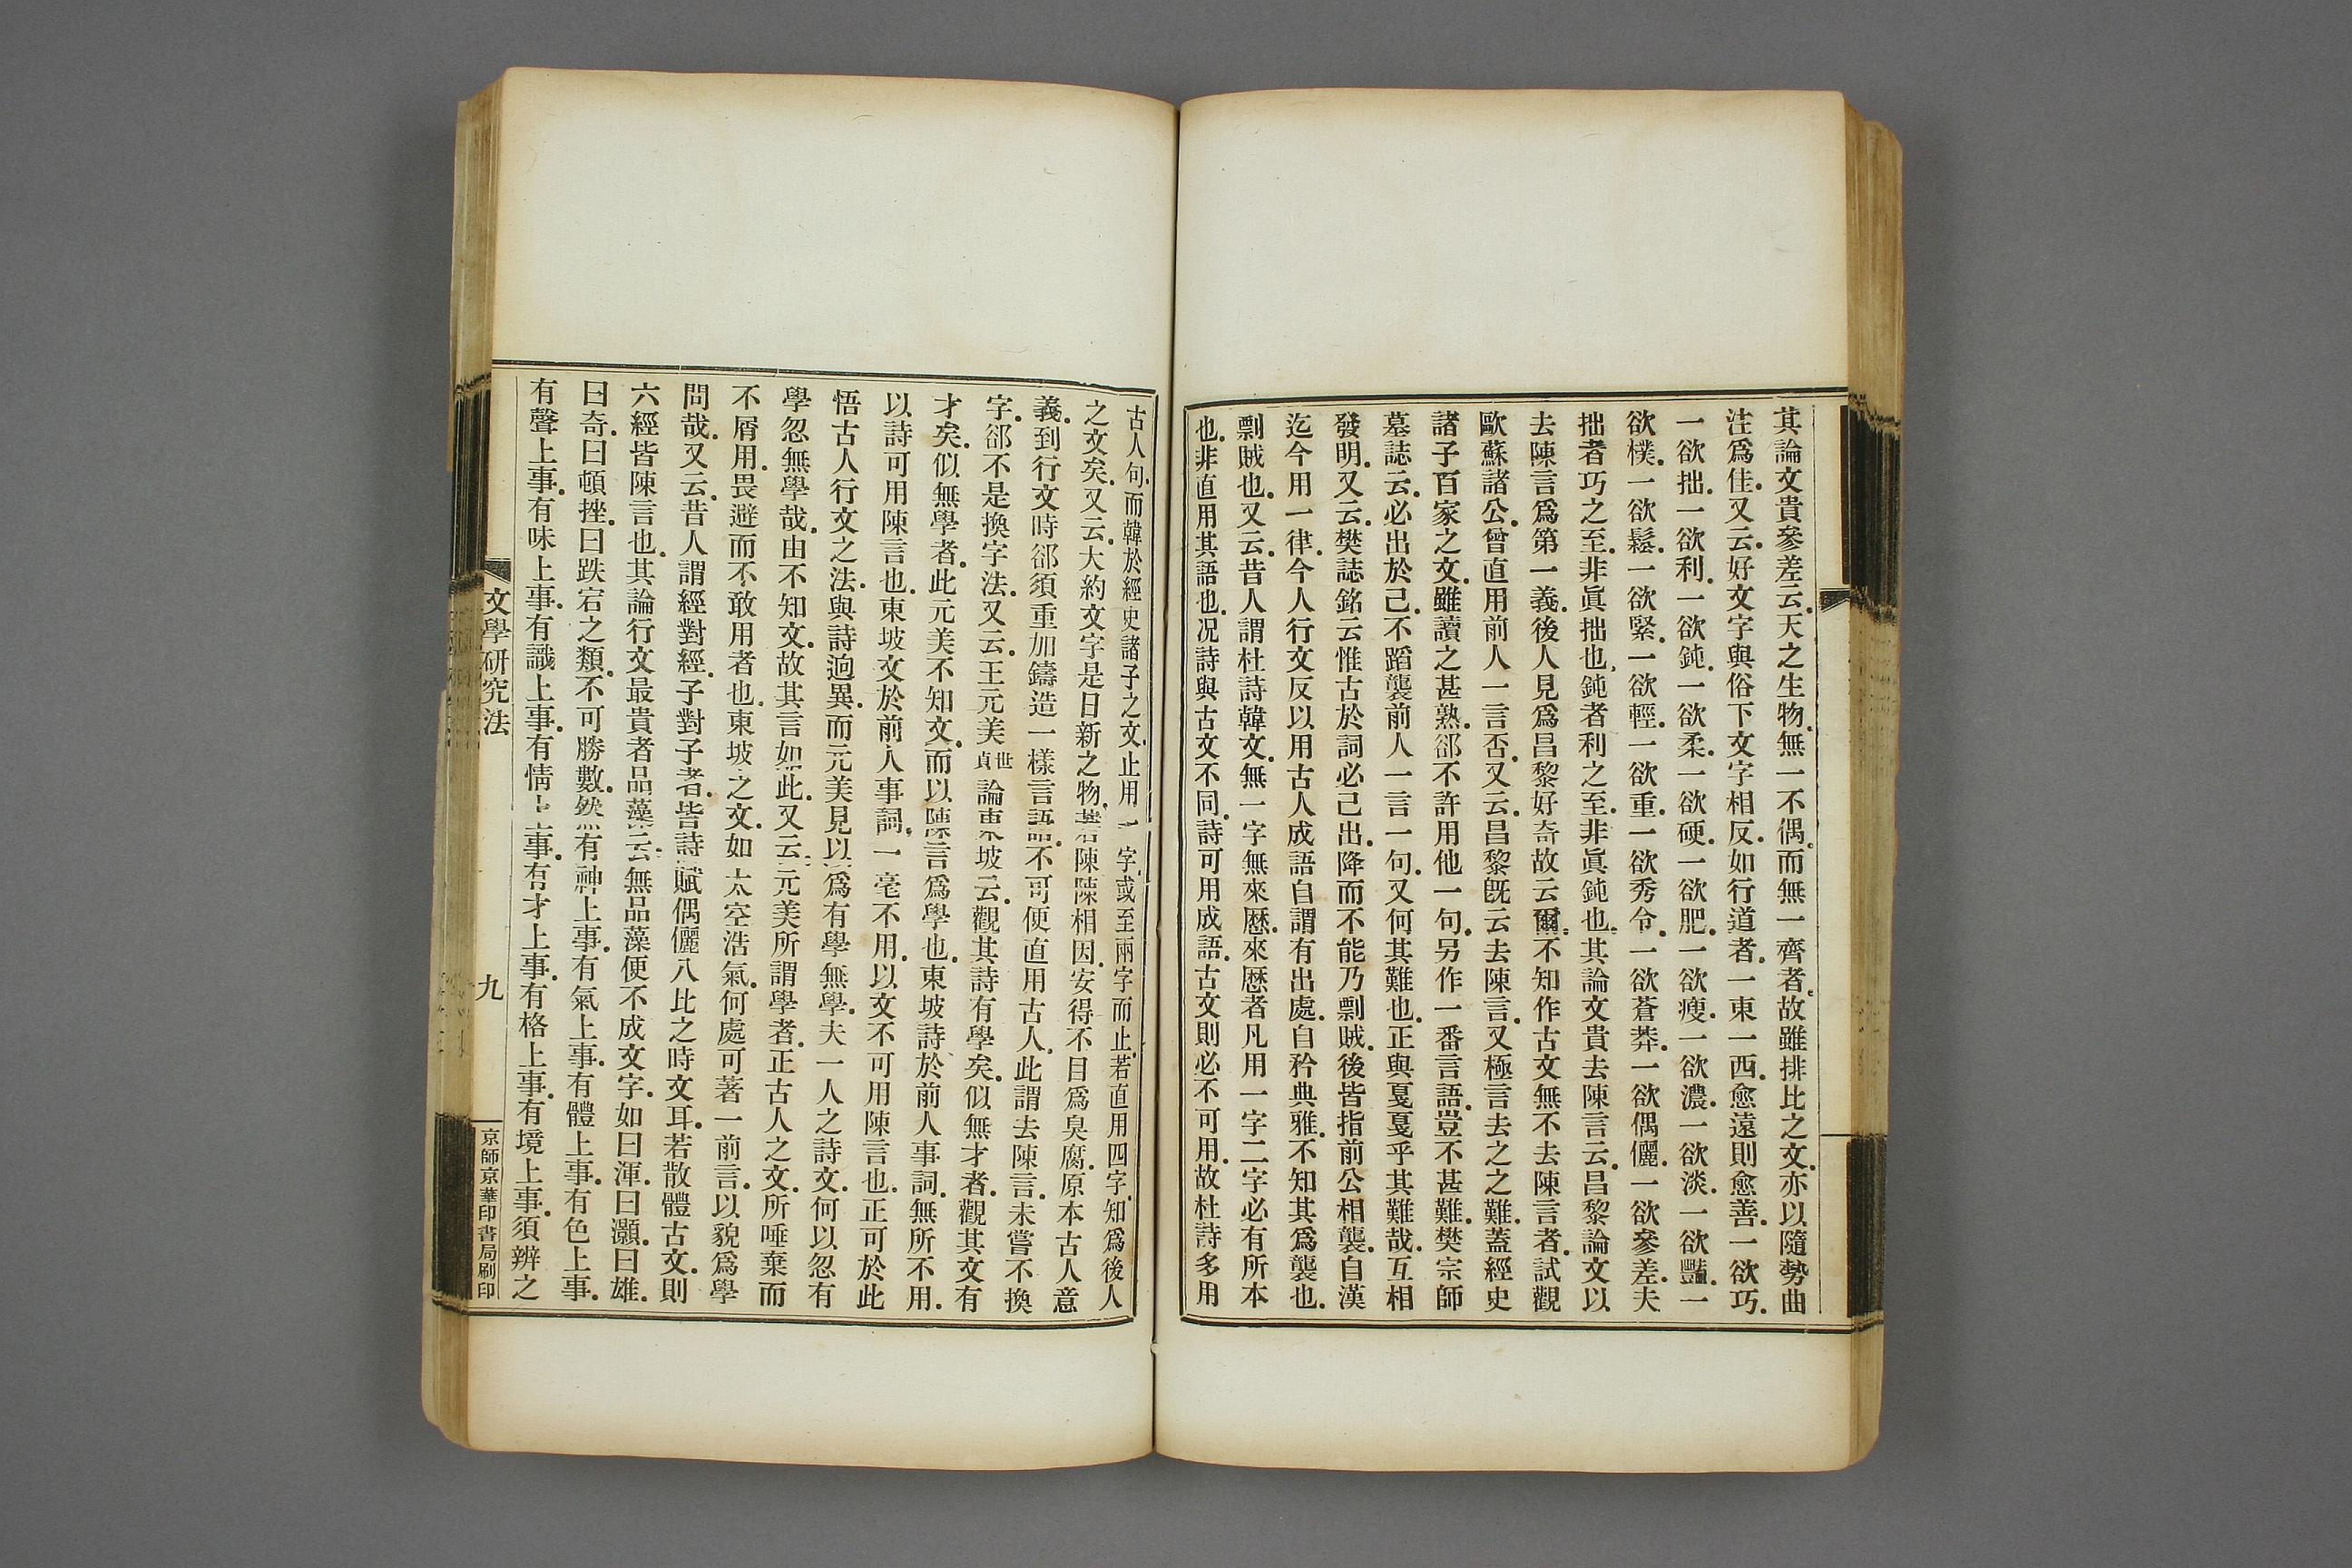 其論文貴參差云.天之生物.無一不偶.而無一齊者.故雖排比之文.亦以隨勢曲
注爲佳.又云.好文字與俗下文字相反.如行道者.一東一西.愈遠則愈善.一欲巧.
一欲拙.一欲利.一欲鈍.一欲柔.一欲硬.一欲肥.一欲瘦.一欲濃.一欲淡.一欲豔.一
欲樸.一欲鬆.一欲緊.一欲輕.一欲重.一欲秀令.一欲蒼莽.一欲偶儷.一欲參差.夫
拙者巧之至.非眞拙也.鈍者利之至.非眞鈍也.其論文貴去陳言云.昌黎論文以
去陳言爲第一義.後人見爲昌黎好奇故云爾.不知作古文無不去陳言者.試觀
歐蘇諸公.曾直用前人一言否.又云.昌黎旣云去陳言.又極言去之之難.蓋經史
諸子百家之文.雖讀之甚熟.卻不許用他一句.另作一番言語.豈不甚難.樊宗師
墓誌云.必出於己.不蹈襲前人一言一句.又何其難也.正與戛戛乎其難哉.互相
發明.又云.樊誌銘云惟古於詞必己出.降而不能乃剽賊.後皆指前公相襲.自漢
迄今用一律.今人行文反以用古人成語自謂有出處.自矜典雅.不知其爲襲也.
剽賊也.又云.昔人謂杜詩韓文.無一字無來歷.來歷者凡用一字二字必有所本
也.非直用其語也.况詩與古文不同.詩可用成語.古文則必不可用.故杜詩多用
古人句.而韓於經史諸子之文.止用一字.或至兩字而止.若直用四字.知爲後人
之文矣.又云.大約文字是日新之物.若陳陳相因.安得不目爲臭腐.原本古人意
義.到行文時卻須重加鑄造一樣言語.不可便直用古人.此謂去陳言.未嘗不換
字.卻不是換字法.又云.王元美世貞論東坡云.觀其詩有學矣.似無才者.觀其文有
才矣.似無學者.此元美不知文.而以陳言爲學也.東坡詩於前人事詞.無所不用.
以詩可用陳言也.東坡文於前人事詞.一毫不用.以文不可用陳言也.正可於此
悟古人行文之法.與詩逈異.而元美見以爲有學無學.夫一人之詩文.何以忽有
學忽無學哉.由不知文.故其言如此.又云.元美所謂學者.正古人之文.所唾棄而
不屑用.畏避而不敢用者也.東坡之文.如太空浩氣.何處可著一前言.以貌爲學
問哉.又云.昔人謂經對經.子對子者.皆詩賦偶儷八比之時文耳.若散體古文.則
六經皆陳言也.其論行文最貴者品藻云.無品藻便不成文字.如曰渾.曰灝.曰雄.
曰奇.曰頓挫.曰跌宕之類.不可勝數.然有神上事.有氣上事.有體上事.有色上事.
有聲上事.有味上事.有識上事.有情上事.有才上事.有格上事.有境上事.須辨之
文學研究法
九
京師京華印書局刷印